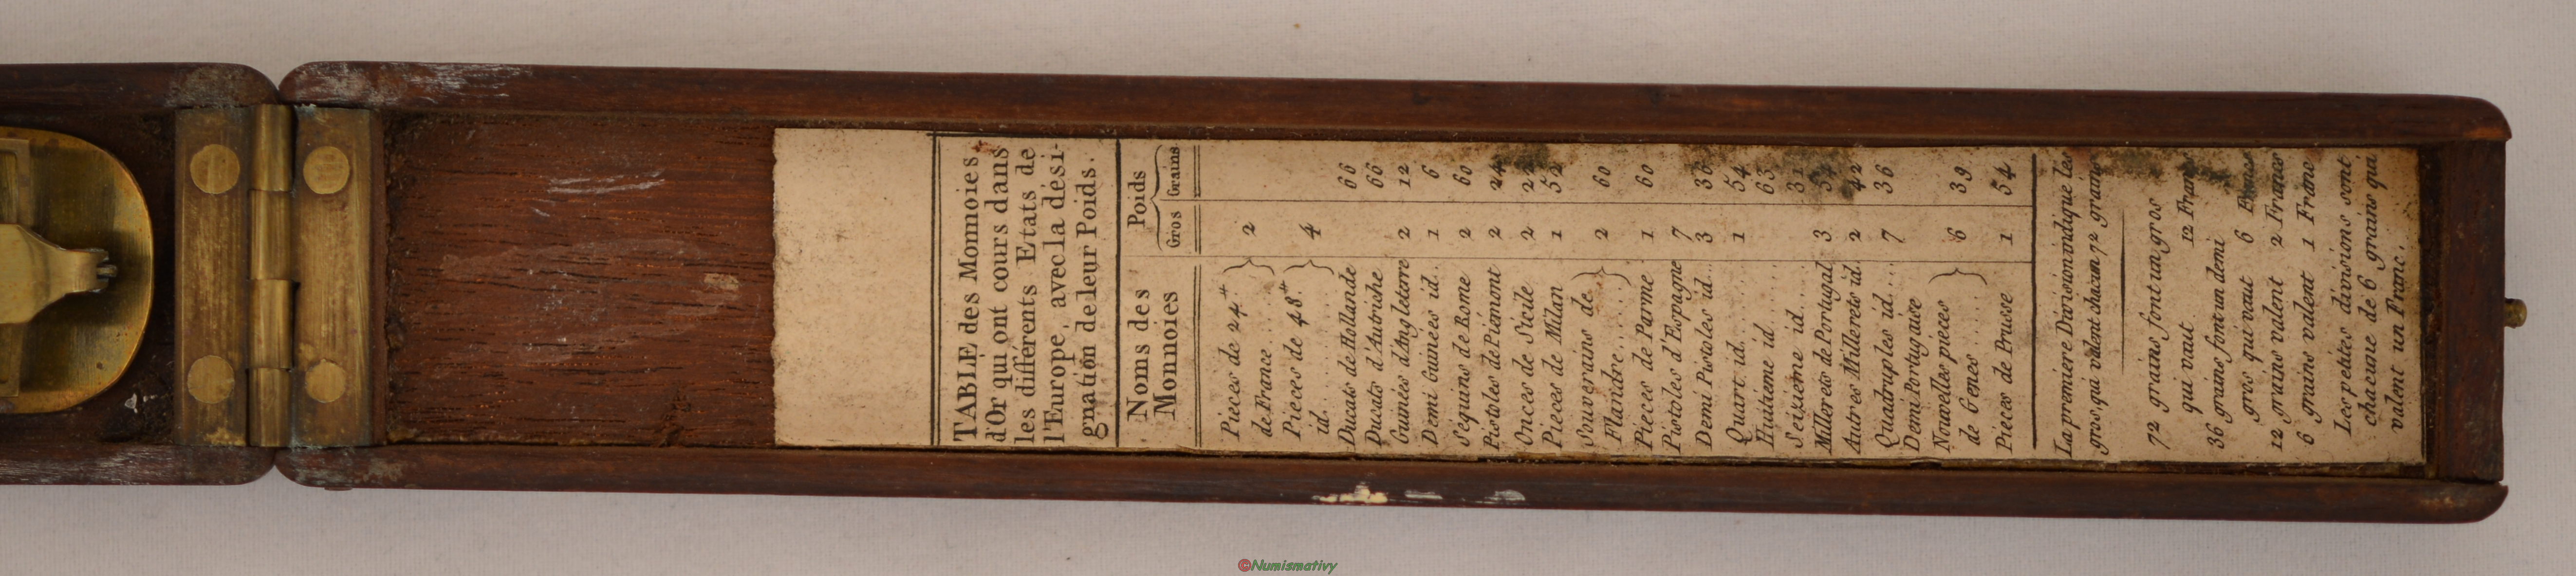 TABLE des Monnoies
d'Or qui ont cours dans
les différents Etats de
l'Europe, avec la dési-
gnation de leur Poids.
Noms des Monnoies | Poids
Gros | Grains
Pieces de 24ᵗᵗ
de France ..... 2
Pieces de 48ᵗᵗ
id. ........ 4
Ducats de Hollande 66
Ducats d'Autriche 66
Guinées d'Angleterre 2 12
Demi Guinées id. 1 6
Sequins de Rome 2 60
Pistoles de Piémont 2 24
Onces de Sicile 2 22
Pieces de Milan 1 52
Souverains de
Flandre ...... 2 60
Pieces de Parme 1 60
Pistoles d'Espagne 7
Demi Pistoles id... 3 36
Quart id....... 1 54
Huitieme id...... 63
Seizième id..... 31
Millerets de Portugal 3 54
Autres Millerets id. 2 42
Quadruples id.... 7 36
Demi Portugaise
Nouvelles pièces
de Genes ...... 6 39
Pieces de Prusse 1 54
La premiere Division indique les
gros, qui valent chacun 72 grains
72 grains font un gros
qui vaut .... 12 Francs
36 grains font un demi
gros qui vaut 6 Francs
12 grains valent 2 Francs
6 grains valent 1 Franc
Les petites divisions sont
chacune de 6 grains qui
valent un Franc.
©Numismativy